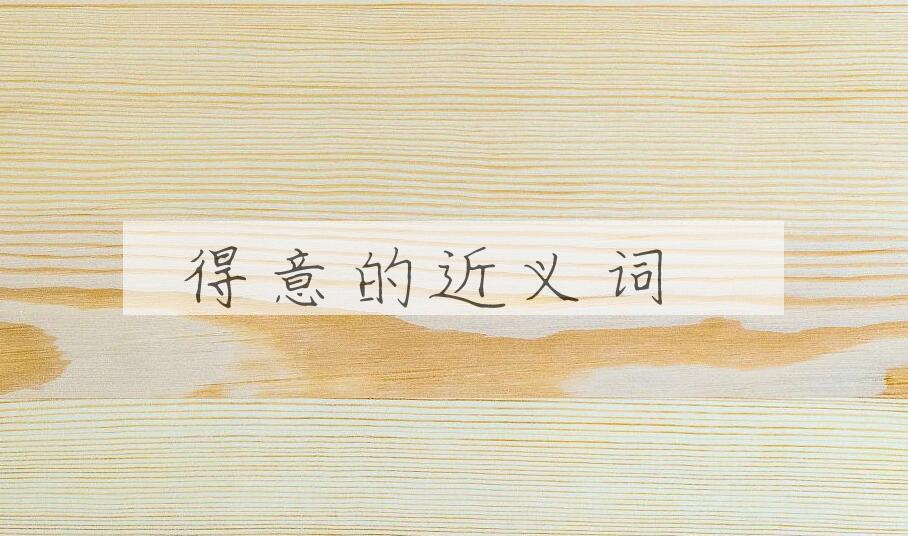 得意的近义词